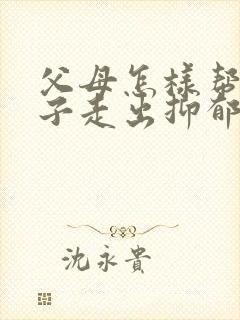 父母怎樣幫
子走出抑郁
沈永貴